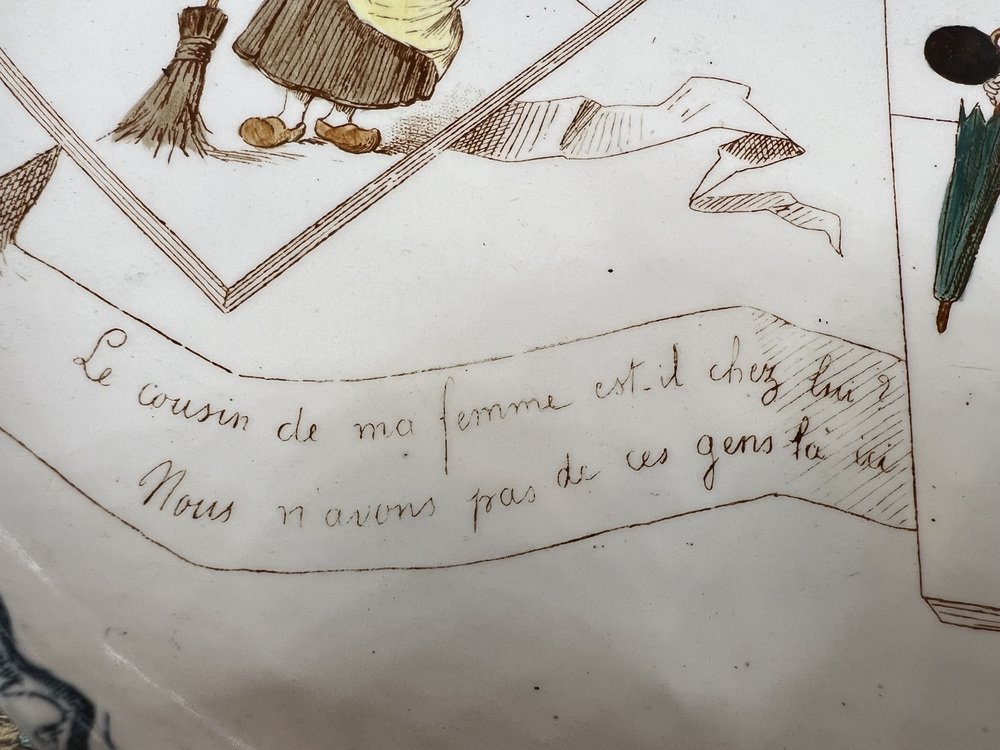 Le cousin de ma femme est-il chez lui ?
Nous n'avons pas de ces gens là ici